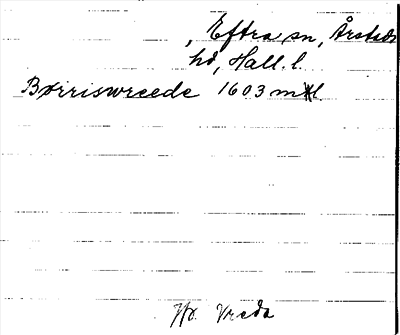 , Eftra sn, Årstads
hd, Hall. l.
Børriswreede 1603 mtl
Vreda